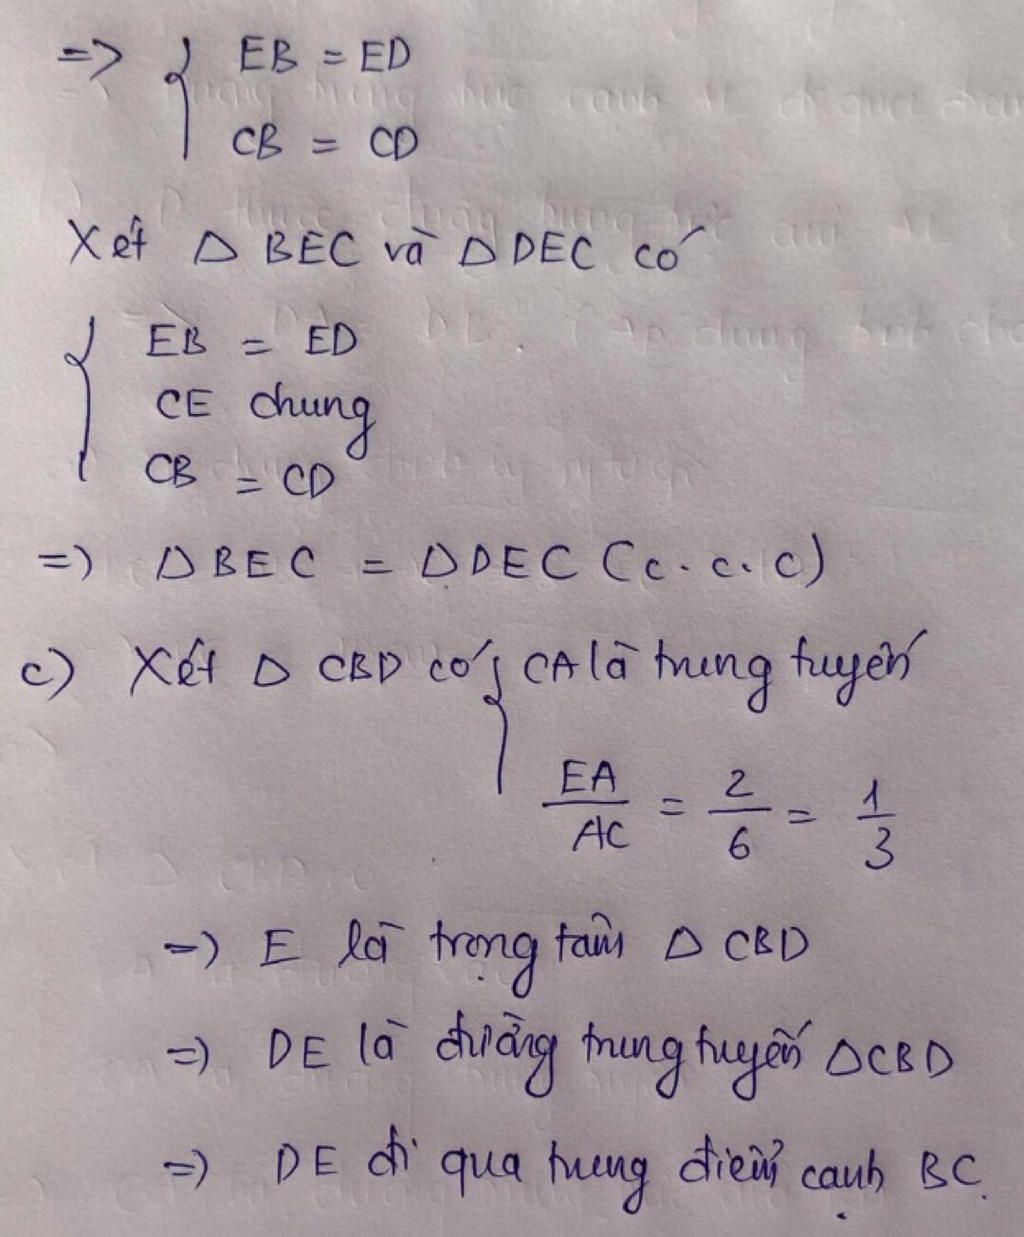 => { EB = ED
CB = CD
Xét Δ BEC và Δ DEC có
{ EB = ED
CE chung
CB = CD
=> Δ BEC = Δ DEC (c.c.c)
c) Xét Δ CBD có { CA là trung tuyến
EA/AC = 2/6 = 1/3
=> E là trọng tâm Δ CBD
=> DE là đường trung tuyến Δ CBD
=> DE đi qua trung điểm cạnh BC.